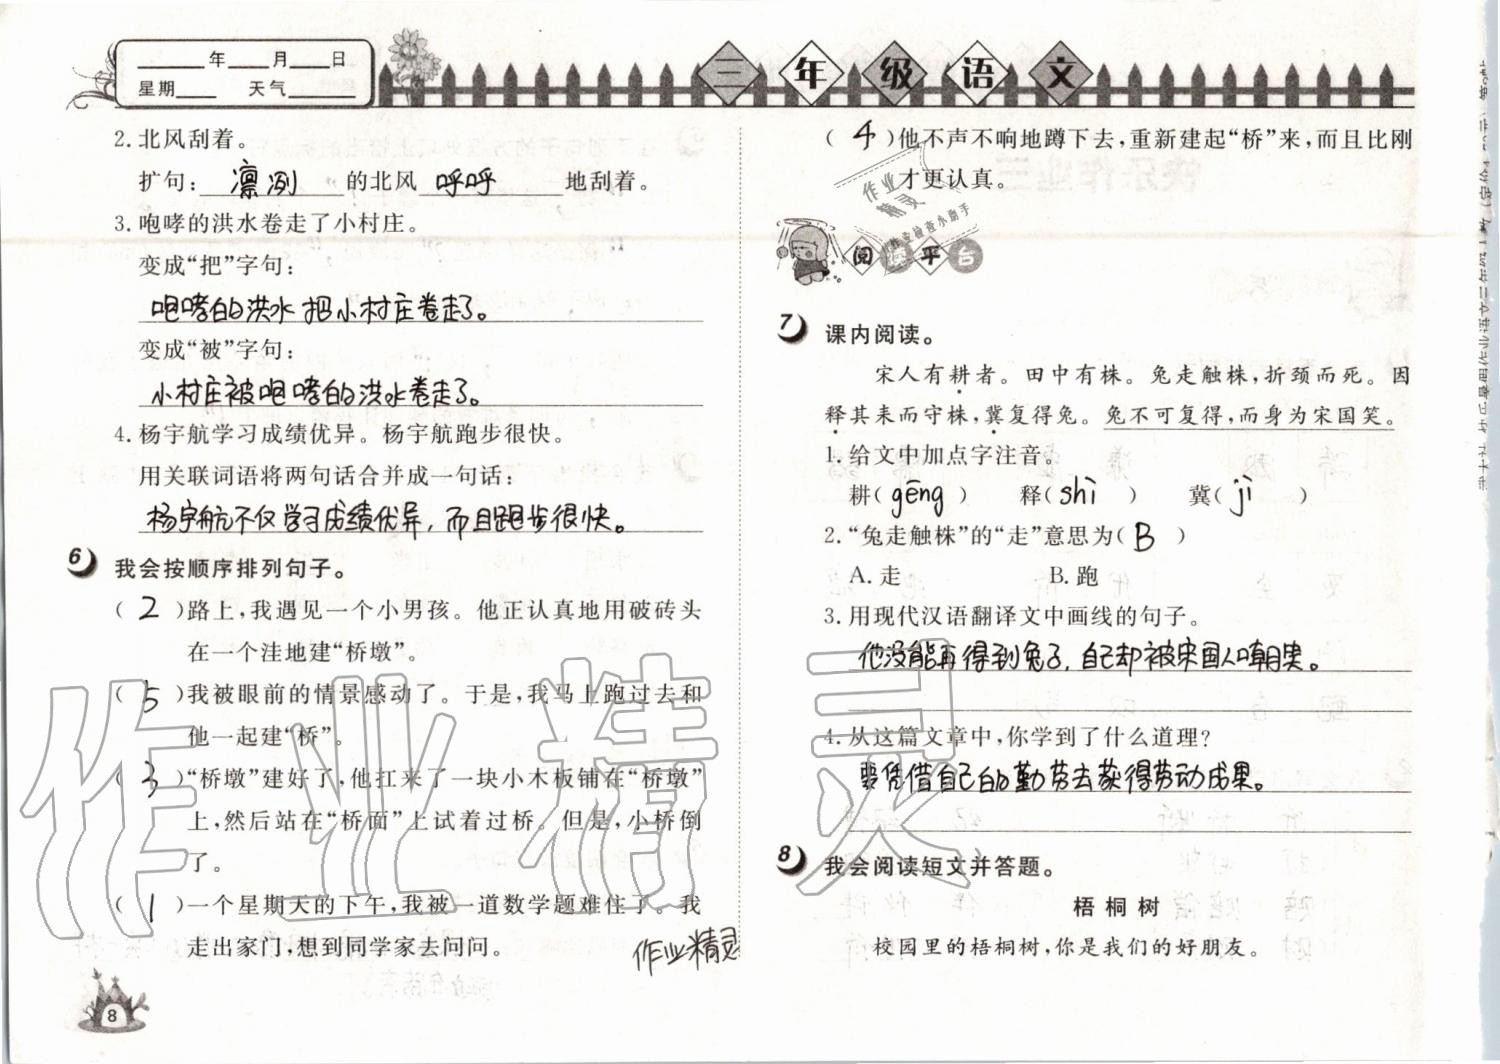 ____年____月____日
星期____ 天气____
三年级语文
2.北风刮着。
扩句:凛冽的北风呼呼地刮着。
3.咆哮的洪水卷走了小村庄。
变成“把”字句:
咆哮的洪水把小村庄卷走了。
变成“被”字句:
小村庄被咆哮的洪水卷走了。
4.杨宇航学习成绩优异。杨宇航跑步很快。
用关联词语将两句话合并成一句话:
杨宇航不仅学习成绩优异,而且跑步很快。
6 我会按顺序排列句子。
(2)路上,我遇见一个小男孩。他正认真地用破砖头
在一个洼地建“桥墩”。
(5)我被眼前的情景感动了。于是,我马上跑过去和
他一起建“桥”。
(3)“桥墩”建好了,他扛来了一块小木板铺在“桥墩”
上,然后站在“桥面”上试着过桥。但是,小桥倒
了。
(1)一个星期天的下午,我被一道数学题难住了。我
走出家门,想到同学家去问问。
作业精灵
8
(4)他不声不响地蹲下去,重新建起“桥”来,而且比刚
才更认真。
作业
精灵
阅读平台
7 课内阅读。
宋人有耕者。田中有株。兔走触株,折颈而死。因
释其耒而守株,冀复得兔。兔不可复得,而身为宋国笑。
1.给文中加点字注音。
耕(gēng) 释(shì) 冀(jì)
2.“兔走触株”的“走”意思为(B)
A.走 B.跑
3.用现代汉语翻译文中画线的句子。
他没能再得到兔子,自己却被宋国人嘲笑。
4.从这篇文章中,你学到了什么道理?
要凭借自己的勤劳去获得劳动成果。
8 我会阅读短文并答题。
梧桐树
校园里的梧桐树,你是我们的好朋友。
作业精灵